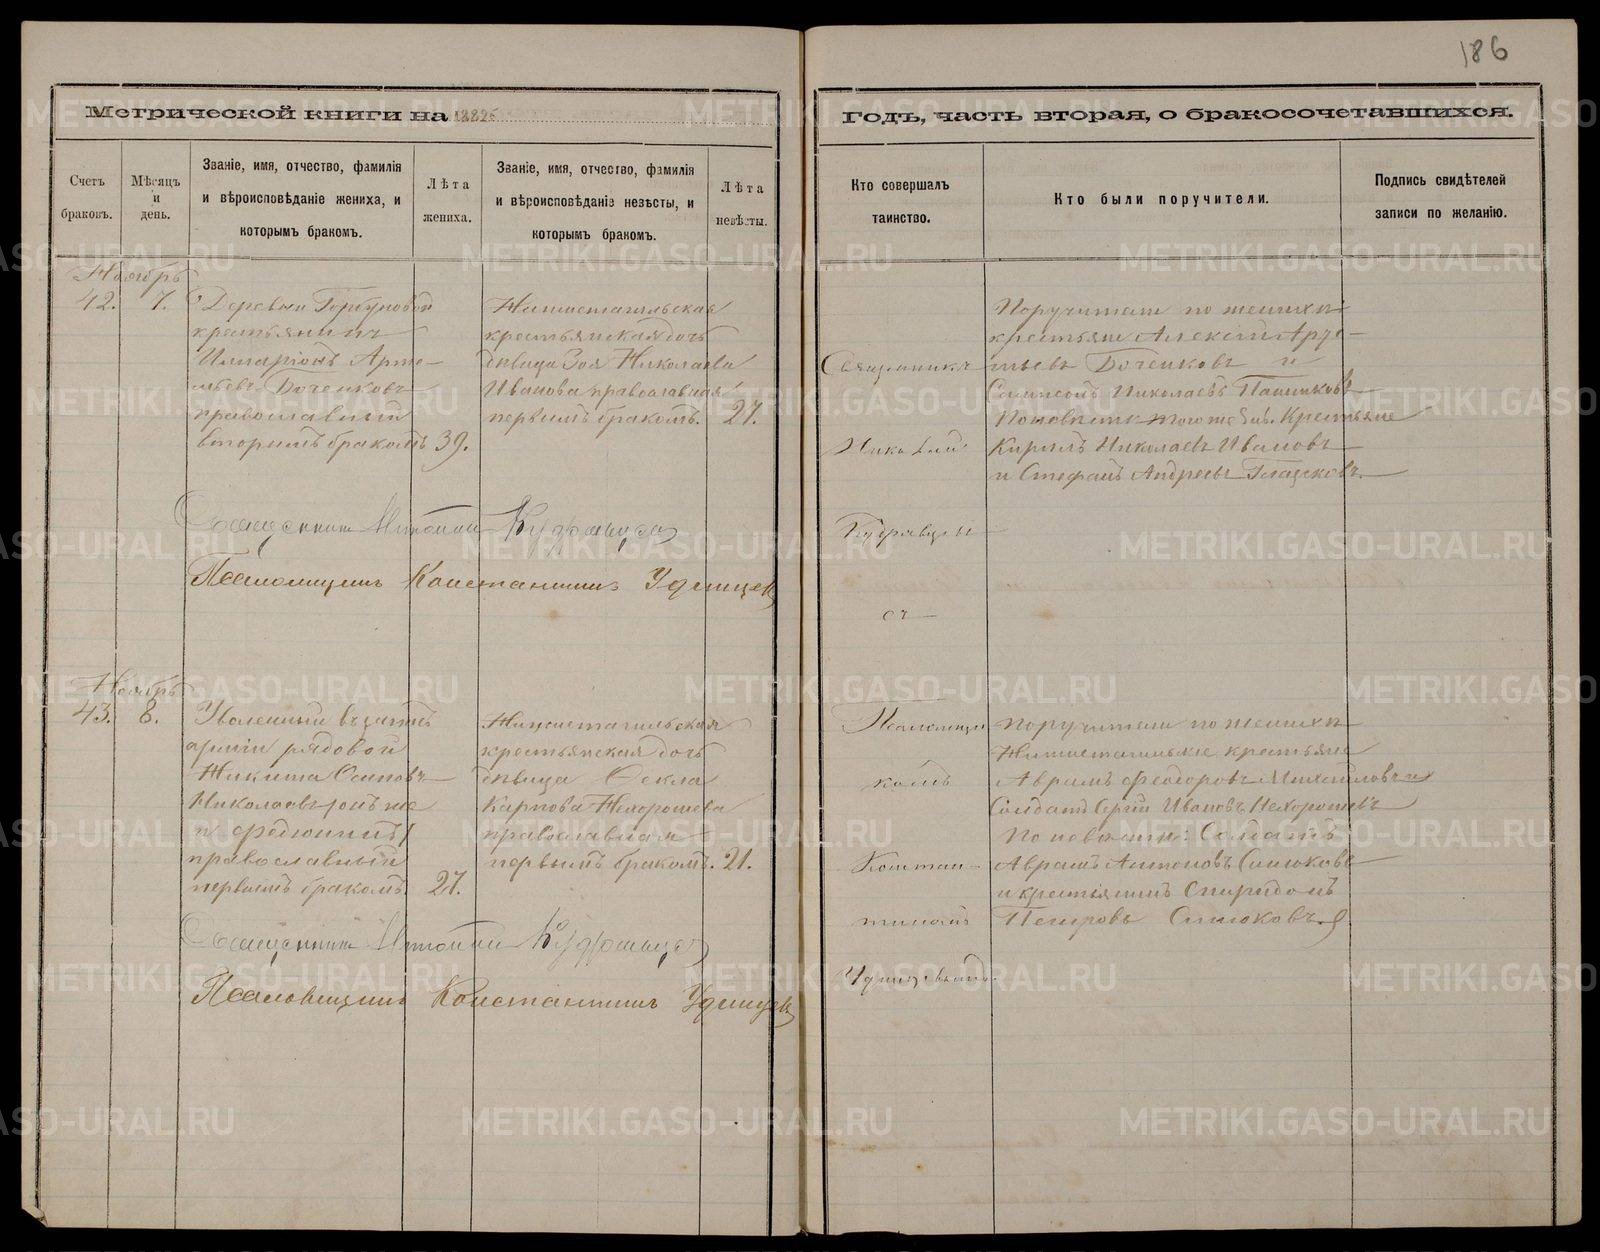 186
Метрической книги на 1882
годъ, часть вторая, о бракосочетавшихся.
Счетъ браковъ.
Мѣсяцъ и день.
Званіе, имя, отчество, фамилія и вѣроисповѣданіе жениха, и которымъ бракомъ.
Лѣта жениха.
Званіе, имя, отчество, фамилія и вѣроисповѣданіе невѣсты, и которымъ бракомъ.
Лѣта невѣсты.
Кто совершалъ таинство.
Кто были поручители.
Подпись свидѣтелей записи по желанію.
Ноябрь
42. 7.
Деревни
крестьянинъ
Илларіонъ Арте-
мьевъ Боченковъ
православный
вторымъ бракомъ 39.
Нижнетагильская
крестьянская дочь
дѣвица Зоя Николаева
Иванова православная
первымъ бракомъ. 27.
Священникъ
Николай
Кудрявцевъ
съ
Поручители по женихѣ
крестьяне Алексѣй Арте-
мьевъ Боченковъ и
Сампсонъ Николаевъ
По невѣстѣ Крестьяне
Кирилъ Николаевъ Ивановъ
и Стефанъ Андреевъ Глазковъ.
Священникъ Кудрявцевъ
Псаломщикъ Константинъ Удинцевъ
Ноябрь
43. 8.
Уволенный въ запасъ
арміи рядовой
Никита Осиповъ
Николаевъ онъ же
и Федюнинъ
православный
первымъ бракомъ 27.
Нижнетагильская
крестьянская дочь
дѣвица Фекла
Карпова Нехорошева
православная
первымъ бракомъ. 21.
Псаломщи
комъ
Констан-
тиномъ
Удинцевымъ.
Поручители по женихѣ
Нижнетагильские крестьяне
Аврамъ Феодоровъ Михайловъ и
Солдатъ Сергій Ивановъ Нехорошевъ
По невѣстѣ: Солдатъ
Аврамъ Антоновъ Силюковъ
и крестьянинъ Спиридонъ
Петровъ Силюковъ.
Священникъ Кудрявцевъ
Псаломщикъ Константинъ Удинцевъ
METRIKI.GASO-URAL.RU